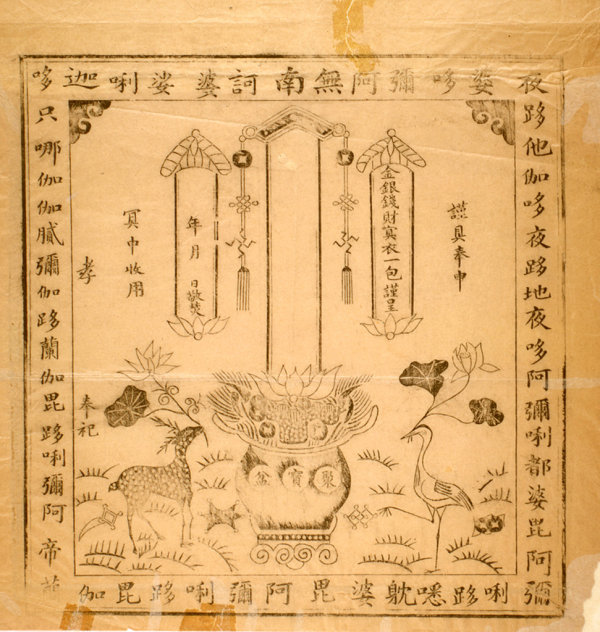 南無阿彌哆婆夜
跢他伽哆夜跢地夜哆阿彌唎都婆毘阿彌
唎跢㗭躭婆毘阿彌唎跢毘伽
帝阿彌唎跢毘伽蘭跢伽彌膩伽伽哪只哆
迦唎娑婆訶
謹具奉申
金銀錢財冥衣一包謹呈
年月 日敬焚
冥中收用
孝 奉祀
聚寶盆